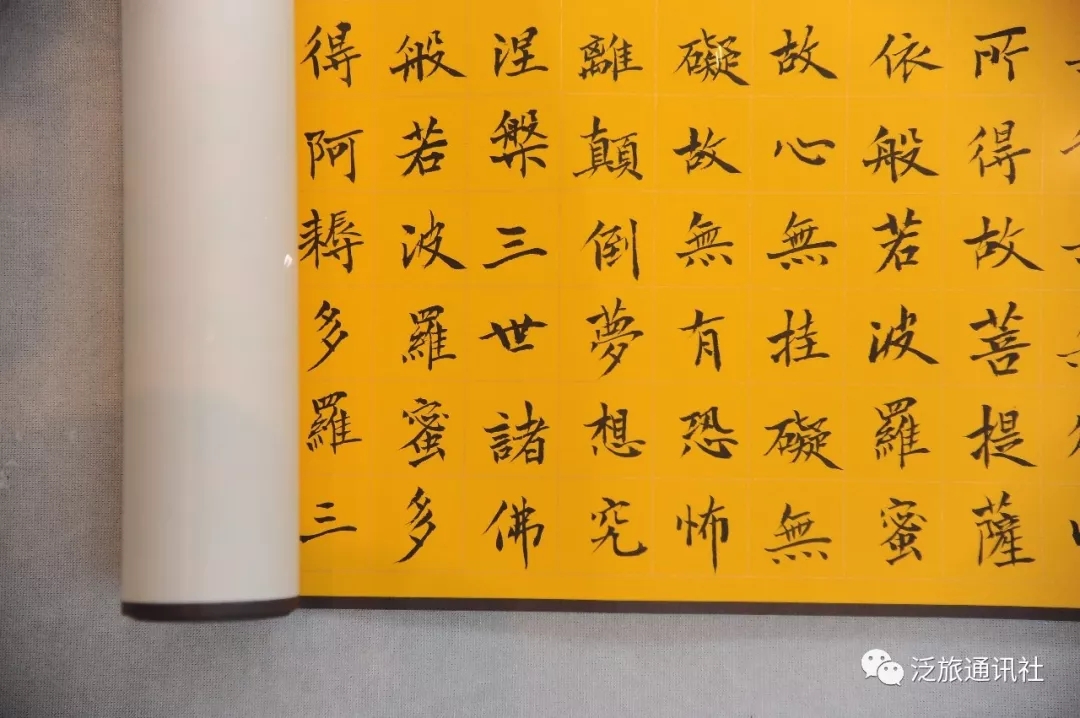 所得故菩提薩
依般若波羅蜜
故心無挂礙無
礙故無有恐怖
離顛倒夢想究
涅槃三世諸佛
般若波羅蜜多
得阿耨多羅三
泛旅通讯社